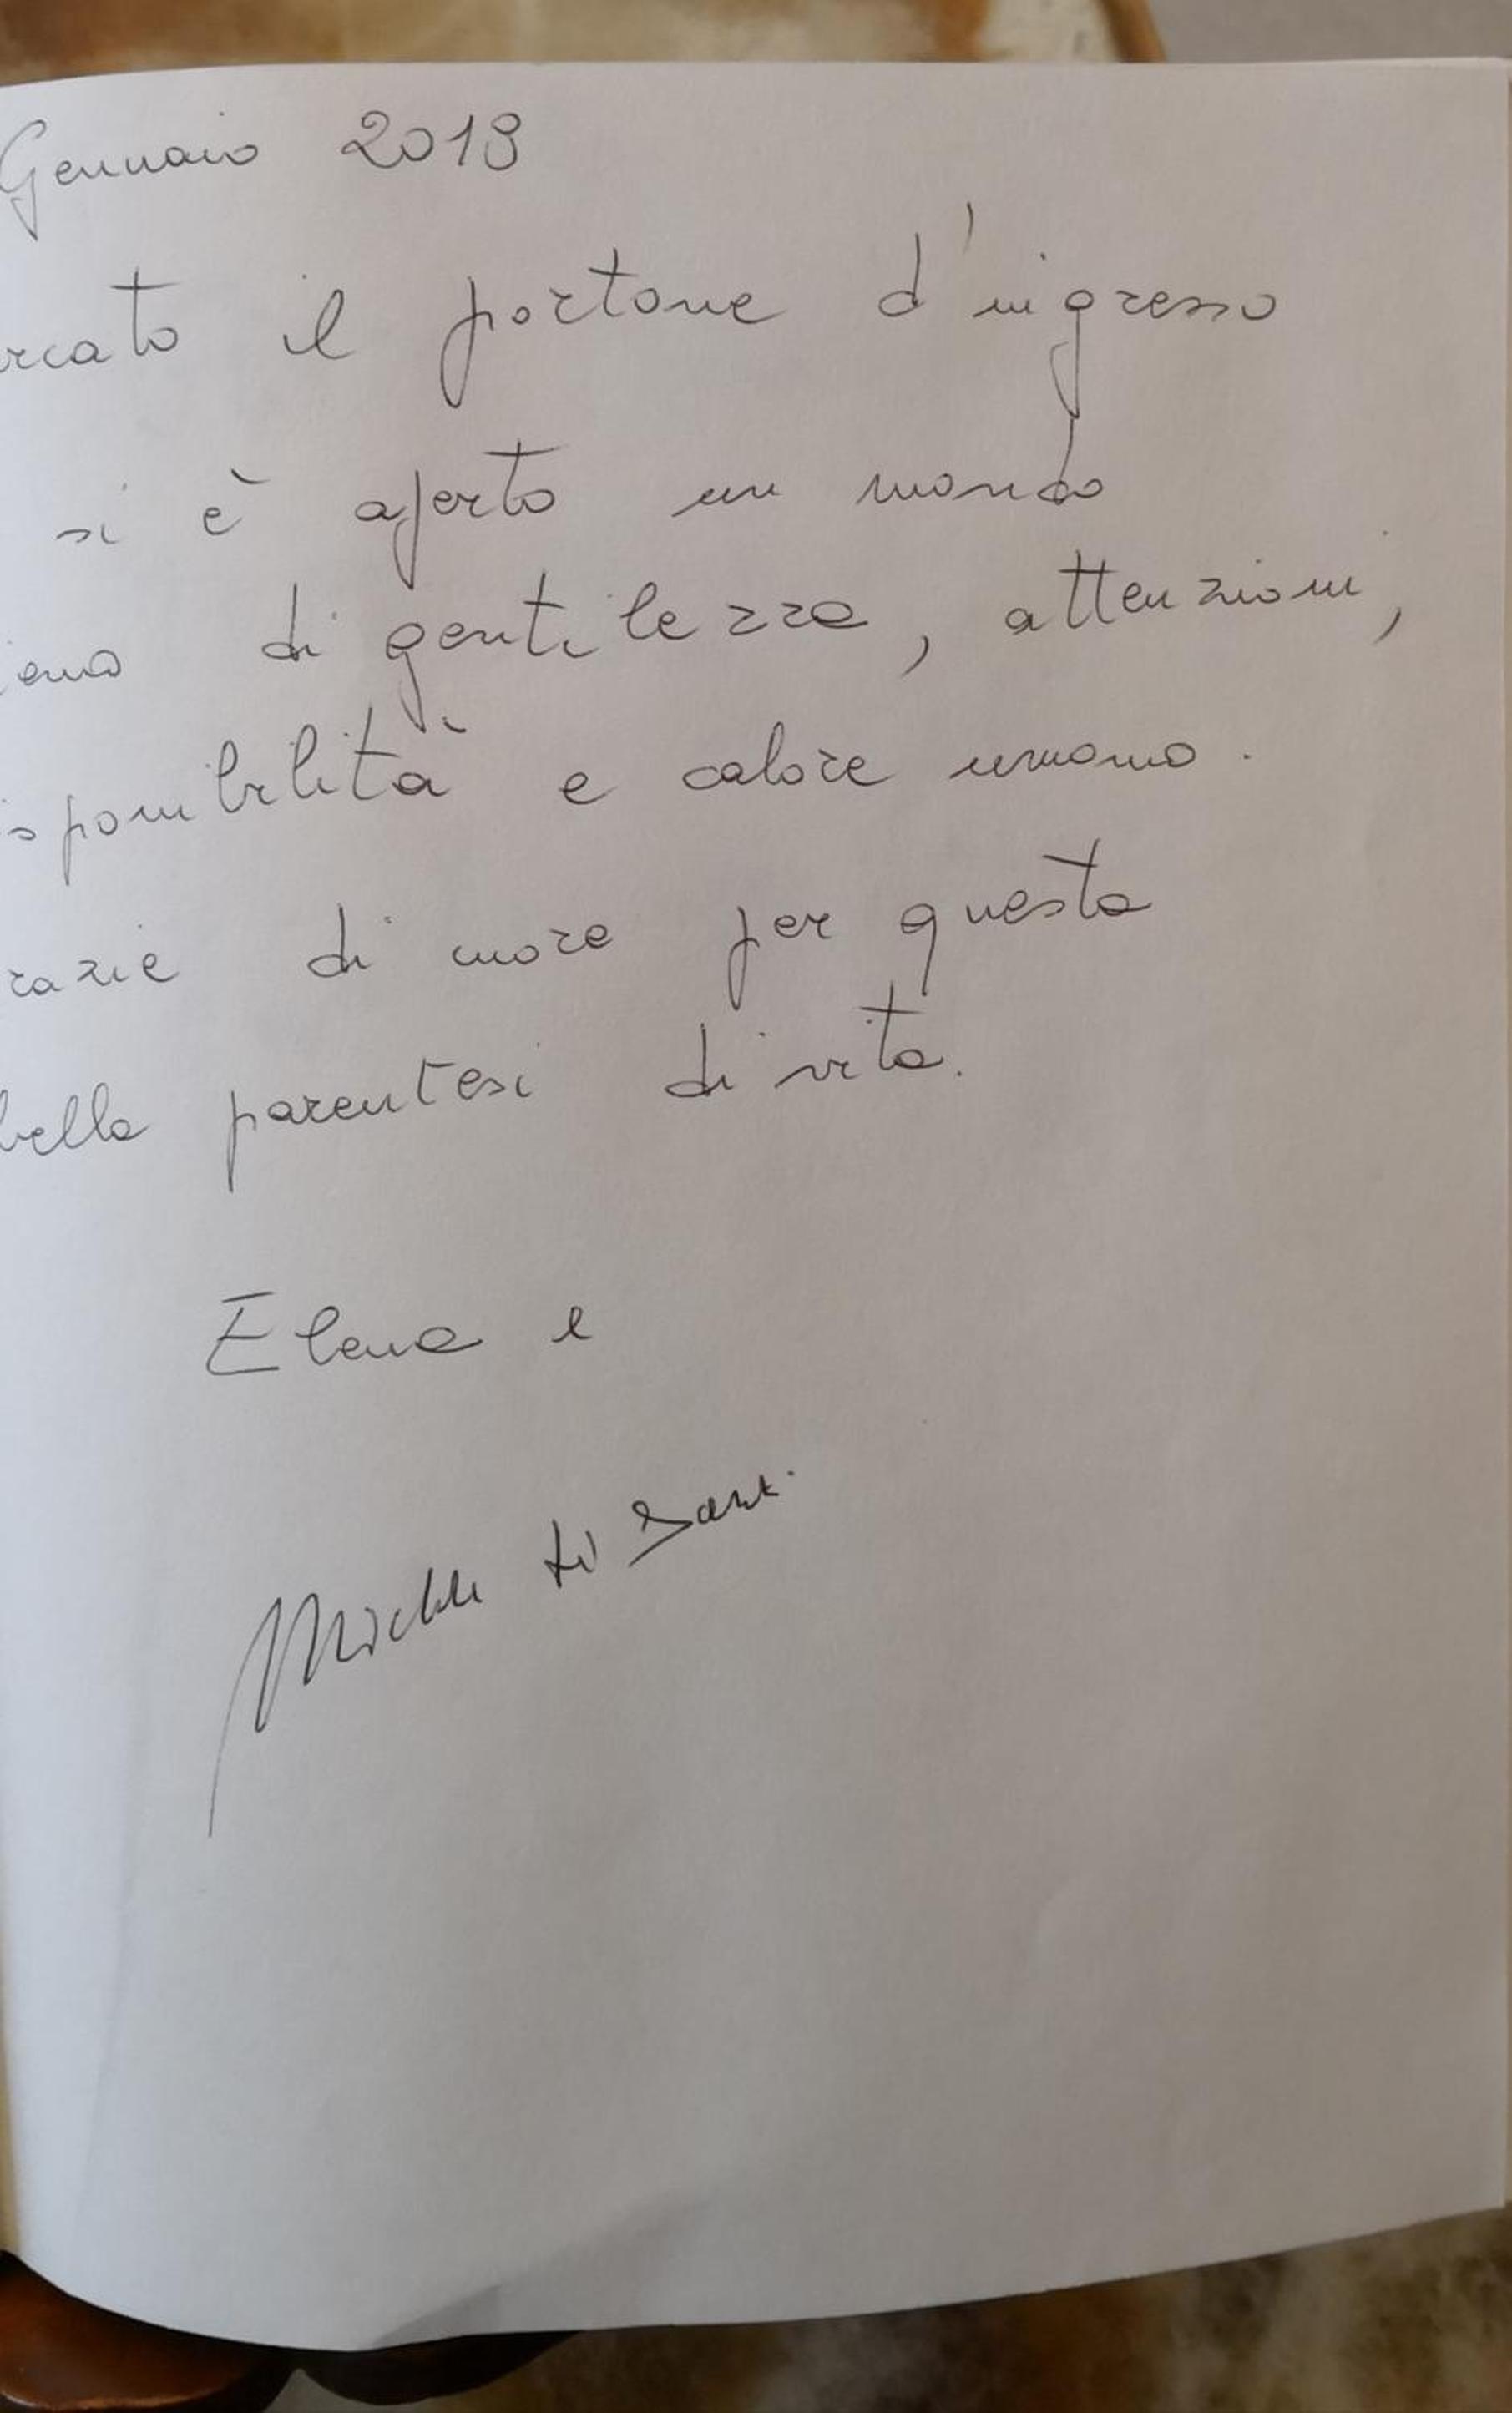 Gennaio 2019
rcato il portone d'ingresso
si è aperto un mondo
ieno di gentilezza, attenzioni,
isponibilità e calore umano.
razie di cuore per questa
bella parentesi di vita.
Elena e
Michele